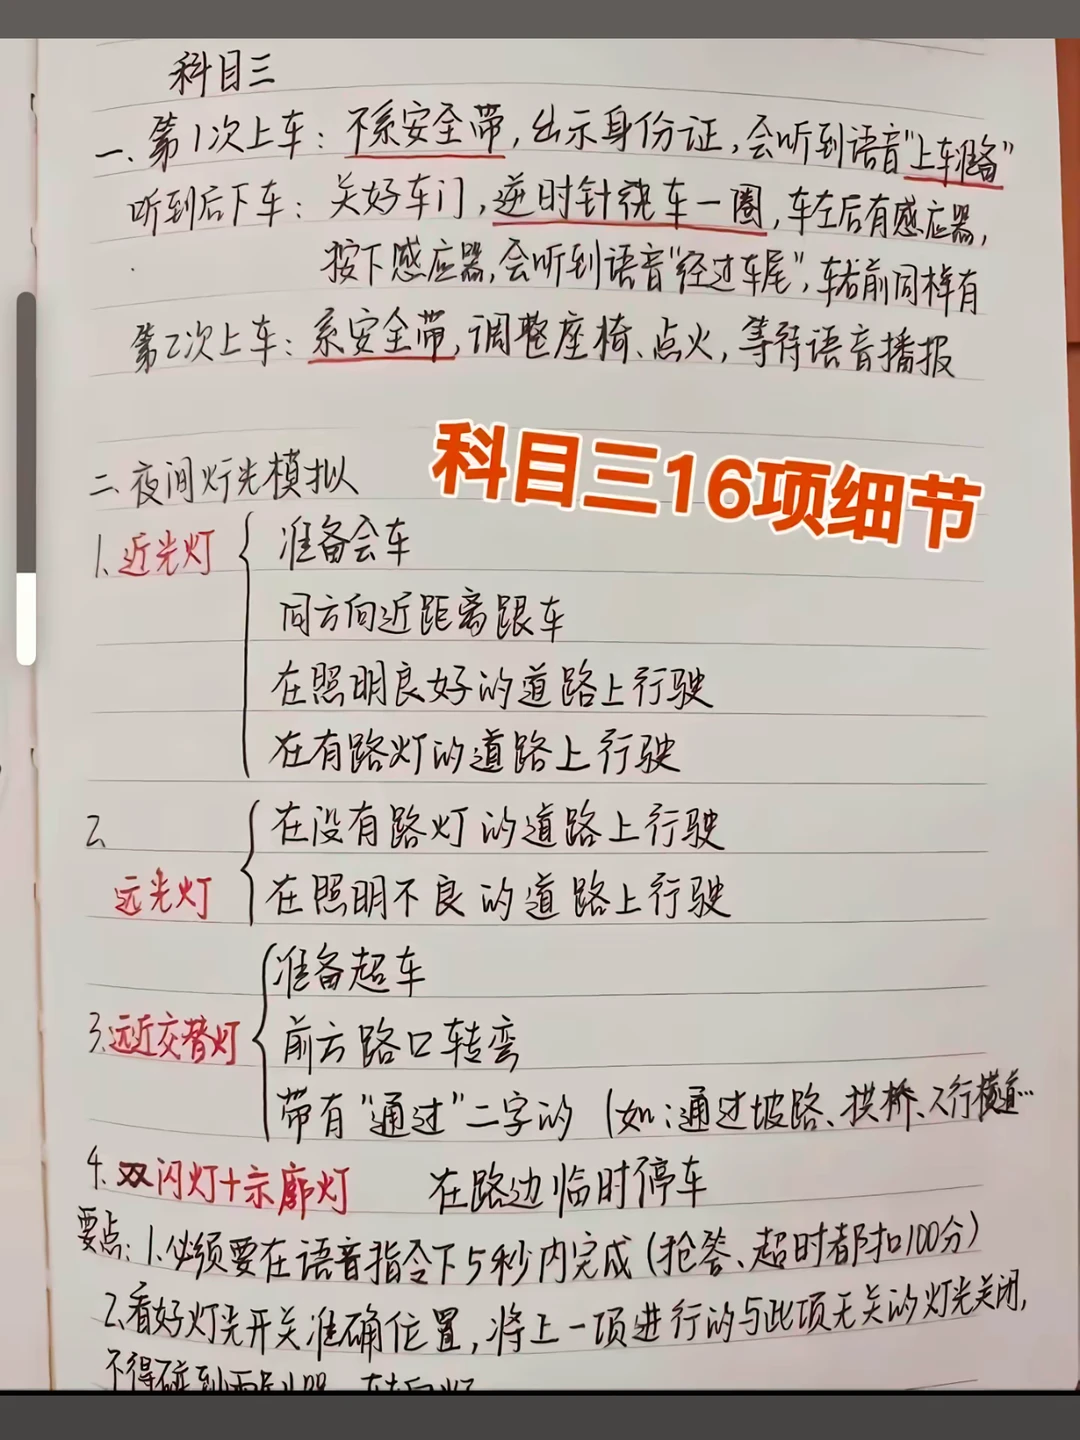 科目三
一、第1次上车：不系安全带，出示身份证，会听到语音"上车准备"
听到后下车：关好车门，逆时针绕车一圈，车左后有感应器，
按下感应器，会听到语音"经过车尾"，车右前同样有
第2次上车：系安全带，调整座椅、点火，等待语音播报
科目三16项细节
二、夜间灯光模拟
1.近光灯
准备会车
同方向近距离跟车
在照明良好的道路上行驶
在有路灯的道路上行驶
2.
远光灯
在没有路灯的道路上行驶
在照明不良的道路上行驶
3.远近交替灯
准备超车
前方路口转弯
带有"通过"二字的（如：通过坡路、拱桥、人行横道…
4.双闪灯+示廓灯 在路边临时停车
要点：1.必须要在语音指令下5秒内完成（抢答、超时都扣100分）
2.看好灯光开关准确位置，将上一项进行的与此项无关的灯光关闭，
不得碰到雨刮器、转向灯